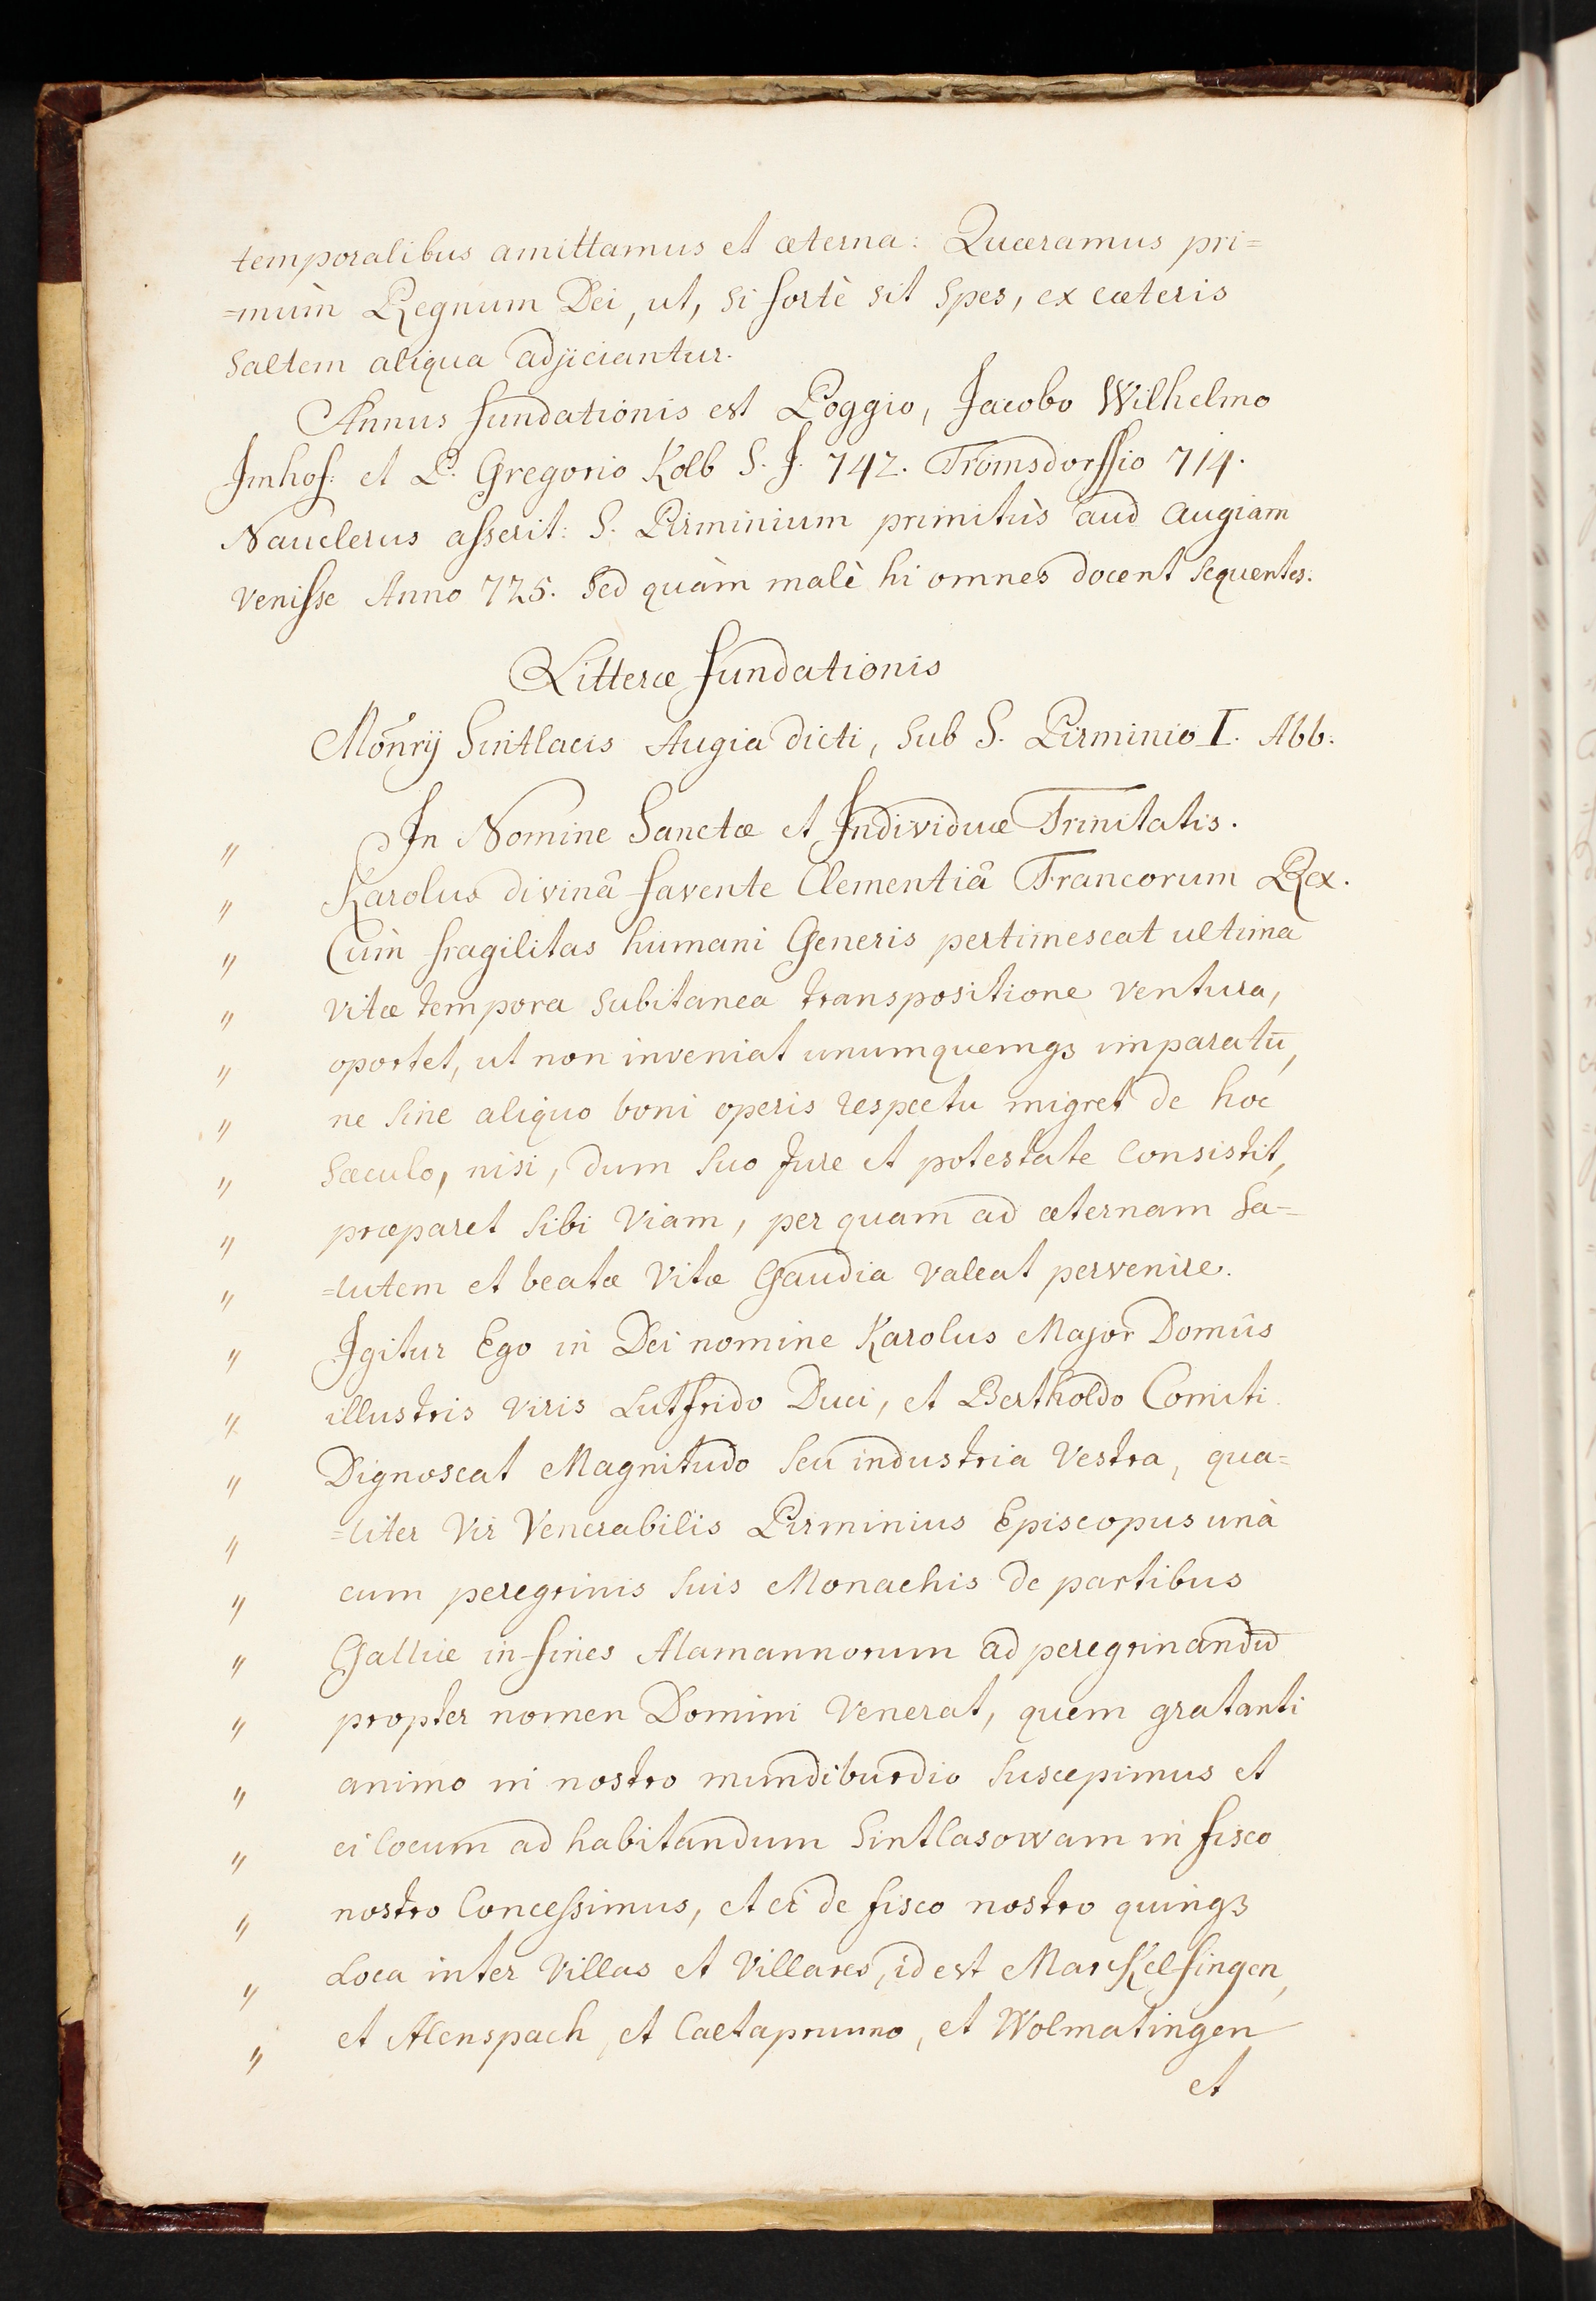 temporalibus amittamus et æterna: Quæramus pri=
=mùm Regnum Dei, ut, si fortè sit Spes, ex cæteris
saltem aliqua adjiciantur.
Annus fundationis est Poggio, Jacobo Wilhelmo
Jmhof: et P. Gregorio Kolb S. J. 742. Tromsdorffio 714.
Nauclerus asserit: S. Pirminium primitùs aud Augiam
venisse Anno 725. Sed quàm malè hi omnes docent sequentes:
Litteræ fundationis
Monrij Sintlacis Augia dicti, sub S. Pirminio I. Abb:
" Jn Nomine Sanctæ et Jndividuæ Trinitatis.
" Karolus divinâ favente Clementiâ Francorum Rex.
" Cùm fragilitas humani Generis pertimescat ultima
" vitæ tempora subitanea transpositione ventura,
" oportet, ut non inveniat unumquemqȝ imparatū,
" ne sine aliquo boni operis respectu migret de hoc
" Sæculo, nisi, dum suo Jure et potestate Consistit,
" præparet sibi Viam, per quam ad æternam Sa=
" =lutem et beatæ Vitæ Gaudia valeat pervenire.
" Jgitur Ego in Dei nomine Karolus Major Domûs
" illustris viris Lutfrido Duci, et Bertholdo Comiti
" Dignoscat Magnitudo seu industria Vestra, qua=
" =liter Vir Venerabilis Pirminius Episcopus unà
" cum peregrinis suis Monachis de partibus
" Galliæ in fines Alamannorum ad peregrinandū
" propter nomen Domini Venerat, quem gratanti
" animo in nostro mundiburdio suscepimus et
" ei locum ad habitandum Sintlasowam in fisco
" nostro Concessimus, et ei de fisco nostro quinqȝ
" Loca inter Villas et Villares, id est Markelfingen,
" et Alenspach, et Caetaprunno, et Wolmatingen
et